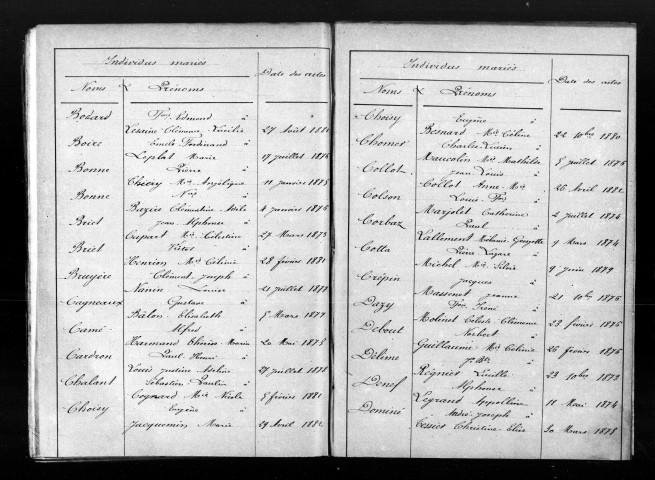 Individus mariés
Date des actes
Noms & Prénoms
Bodard Edmond à
Clémence Lucilie 27 Août 188
Boire Emile Ferdinand à
Leplat Marie 17 juillet 1876
Bonne Pierre à
Thiery Mie Angélique 11 janvier 1875
Bonne Nas à
Bazire Clémentine 4 janvier 1876
Briet Jean Alphonse à
Capart Mie Célestine 27 Mars 1873
Briet Victor à
Henrion Mie Céline 28 février 1881
Bruyère Clément Joseph à
Nanin Louise 21 juillet 187
Cagneaux Gustave à
Bâlon Elisabeth 8 Mars 1879
Camé Alfred à
Harmand Marie 20 Mai 1878
Cardron Paul Henri à
Louis Justine 27 juillet 1878
Chalant Sébastien Paulin à
Cognard Mie Nicole 5 février 1881
Choisy Eugène à
Jacquemin Marie 29 Avril 1882
Individus mariés
Date des actes
Noms & Prénoms
Choisy Eugène à
Besnard Mie Céline 22 10bre 1880
Chomer Charles Lucien à
Mie Mathilde 8 juillet 1876
Collot Jean Louis à
Collot Anne Mie 26 Avril 1882
Colson Louis à
Marjolet Catherine 2 juillet 1874
Corbaz Paul à
Lallement Mélanie 9 Mars 1874
Cotta Pierre Lazare à
Michel Mie 9 juin 1879
Crépin Jacques à
Massenet Jeanne 21 10bre 1876
Dazy Irené à
Molinet Céleste Clémence 23 février 1876
Debout Norbert à
Guillaume Mie Céline 26 février 1876
Délime J. Bte à
Régnier Lucille 23 10bre 1873
Alphonse à
Legrand Appolline 11 Mai 1874
Dominé André Joseph à
Christine Elise 30 Mars 1878